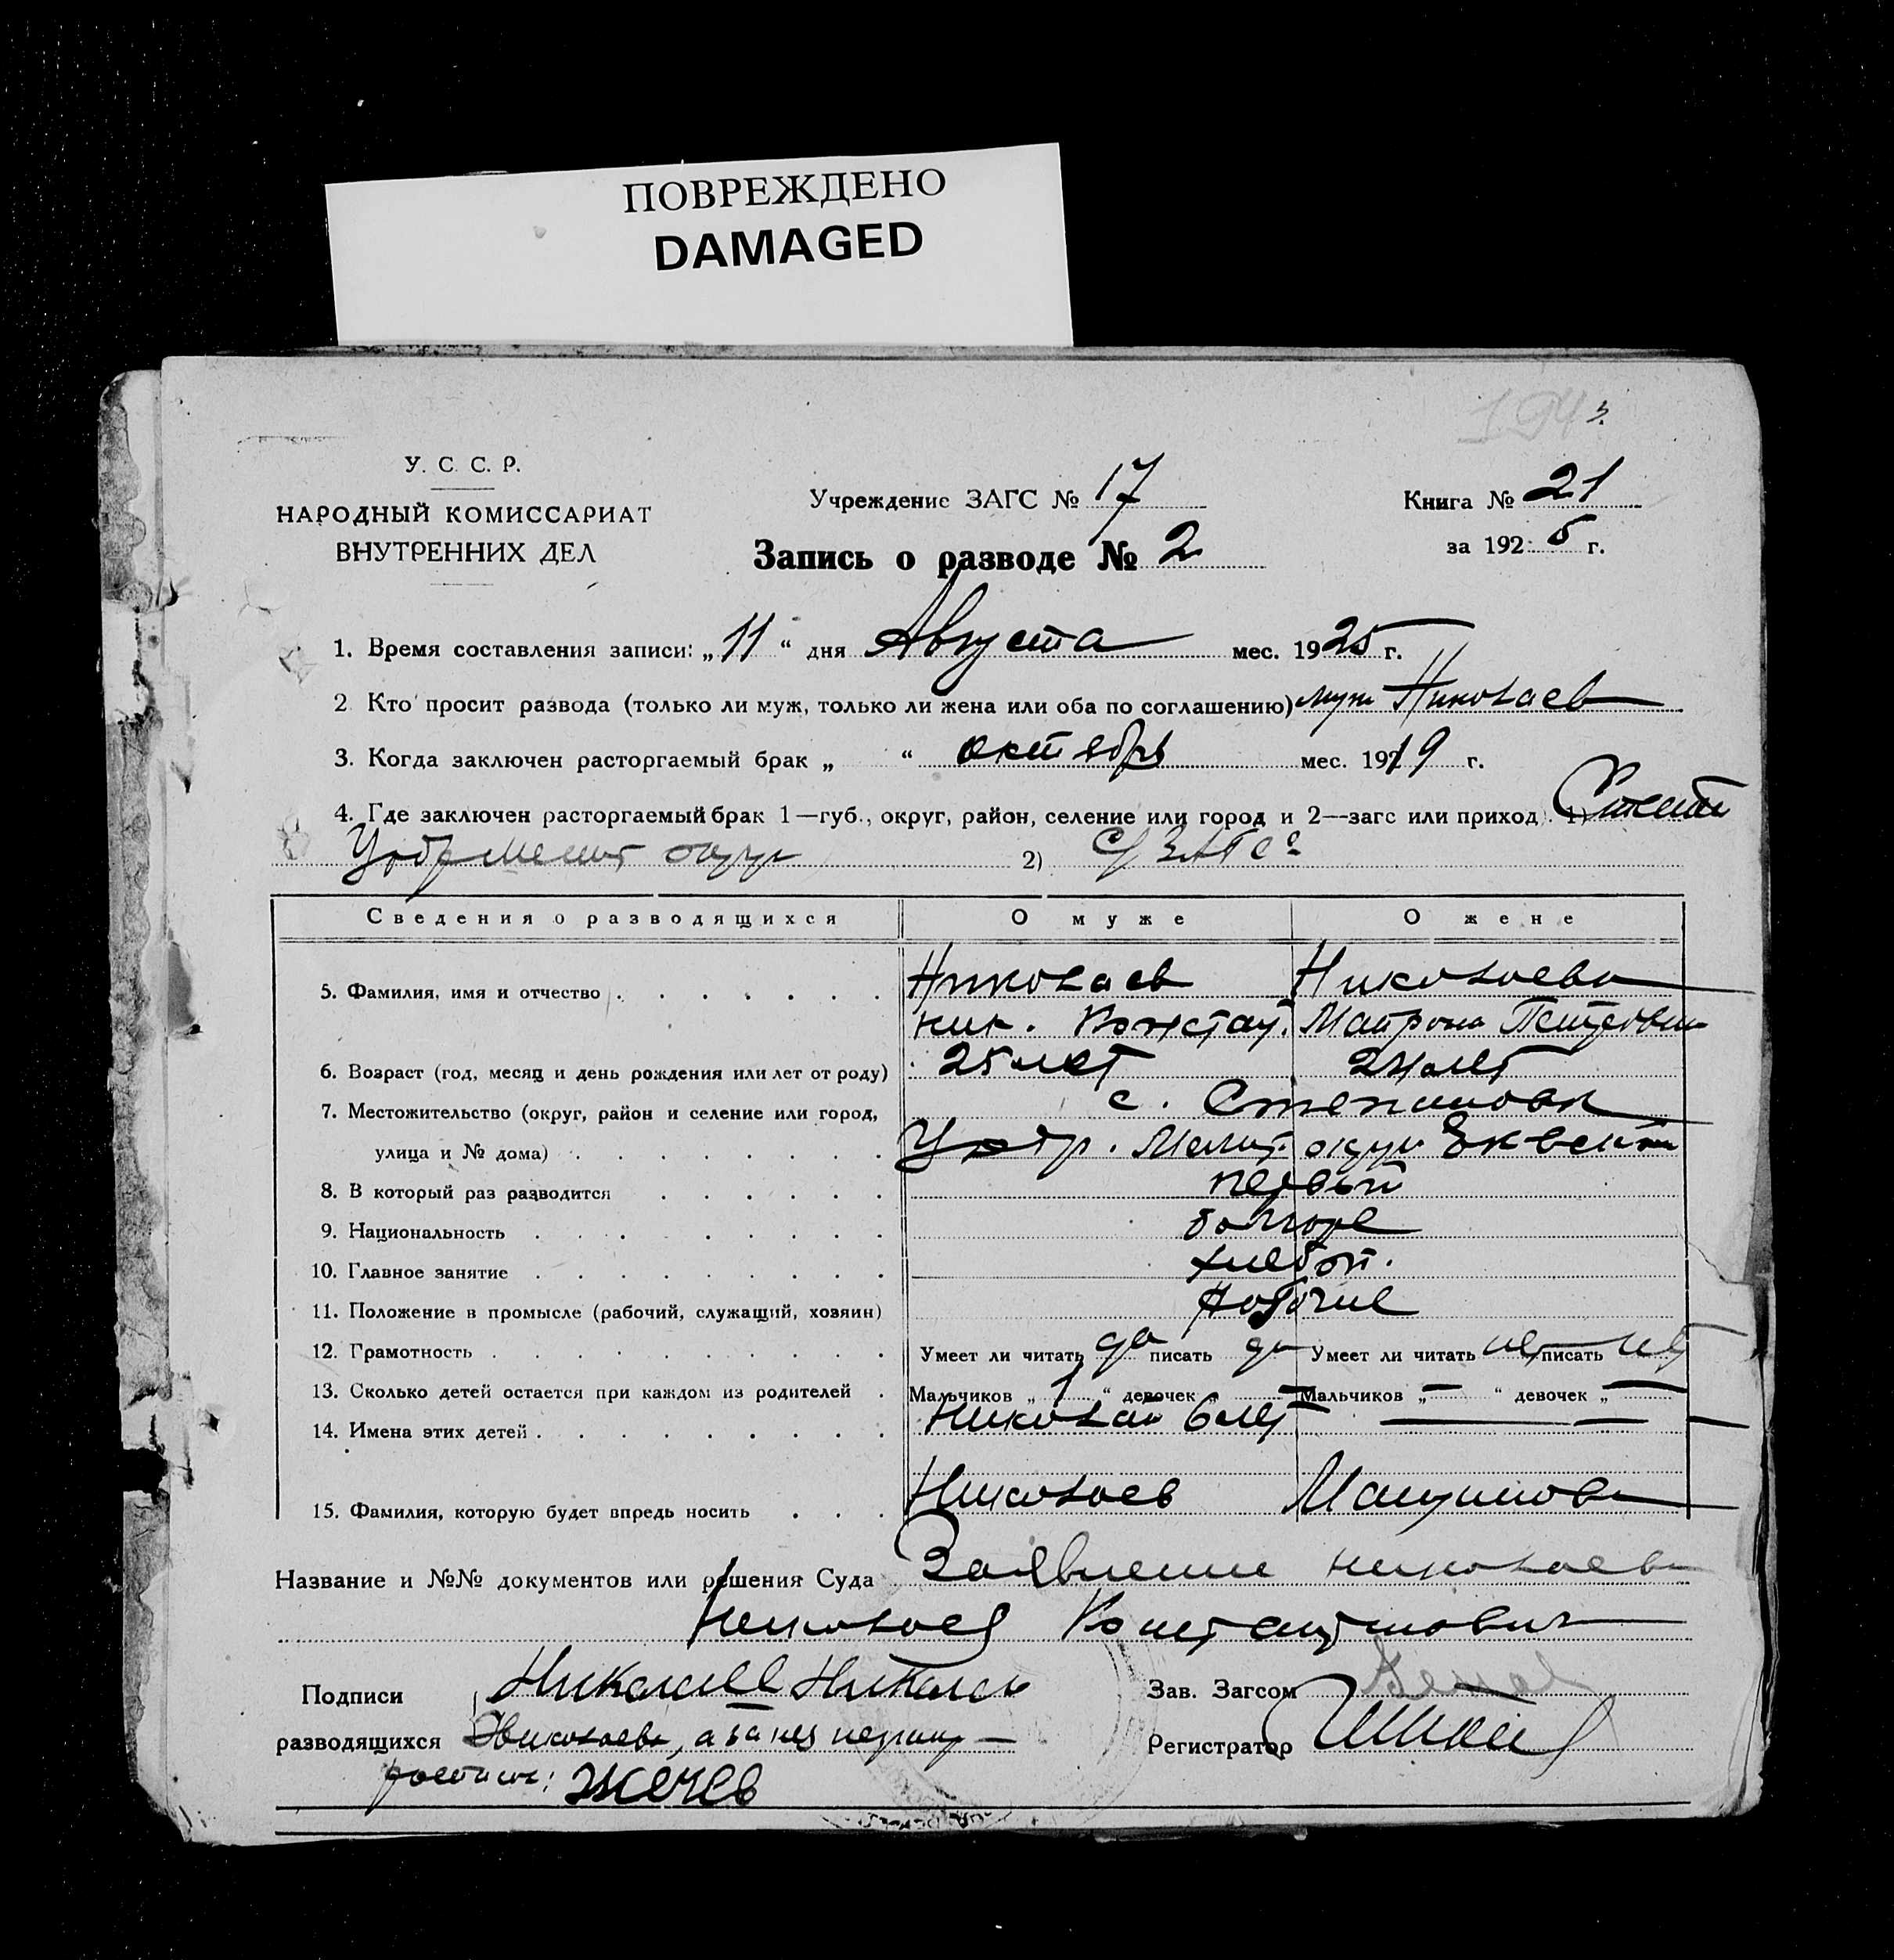 ПОВРЕЖДЕНО
DAMAGED
У. С. С. Р.
НАРОДНЫЙ КОМИССАРИАТ
ВНУТРЕННИХ ДЕЛ
Учреждение ЗАГС № 17
Запись о разводе № 2
Книга № 21
за 1925 г.
1. Время составления записи: „11“ дня Августа мес. 1925 г.
2 Кто просит развода (только ли муж, только ли жена или оба по соглашению) муж Николаев
3. Когда заключен расторгаемый брак „ “ октябрь мес. 1919 г.
4. Где заключен расторгаемый брак 1—губ., округ, район, селение или город и 2—загс или приход. 1)
округ 2)
Сведения о разводящихся О муже О жене
5. Фамилия, имя и отчество Николаев Николаева
Ник. Констант. Матрона Петровна
6. Возраст (год, месяц и день рождения или лет от роду) 25 лет 24 лет
7. Местожительство (округ, район и селение или город, с. Степановка
улица и № дома) Мелит. округ
8. В который раз разводится первый
9. Национальность болгаре
10. Главное занятие хлебоп.
11. Положение в промысле (рабочий, служащий, хозяин) рабочие
12. Грамотность Умеет ли читать да писать да Умеет ли читать нет писать нет
13. Сколько детей остается при каждом из родителей Мальчиков „1“ девочек „ — Мальчиков „—“ девочек „—
14. Имена этих детей Николай 6 лет — —
15. Фамилия, которую будет впредь носить Николаев
Название и №№ документов или решения Суда Заявление Николаева
Николая Константинович
Подписи Николаев Николай
Зав. Загсом
разводящихся Николаева, а за нее неграмот
Регистратор
роспись: